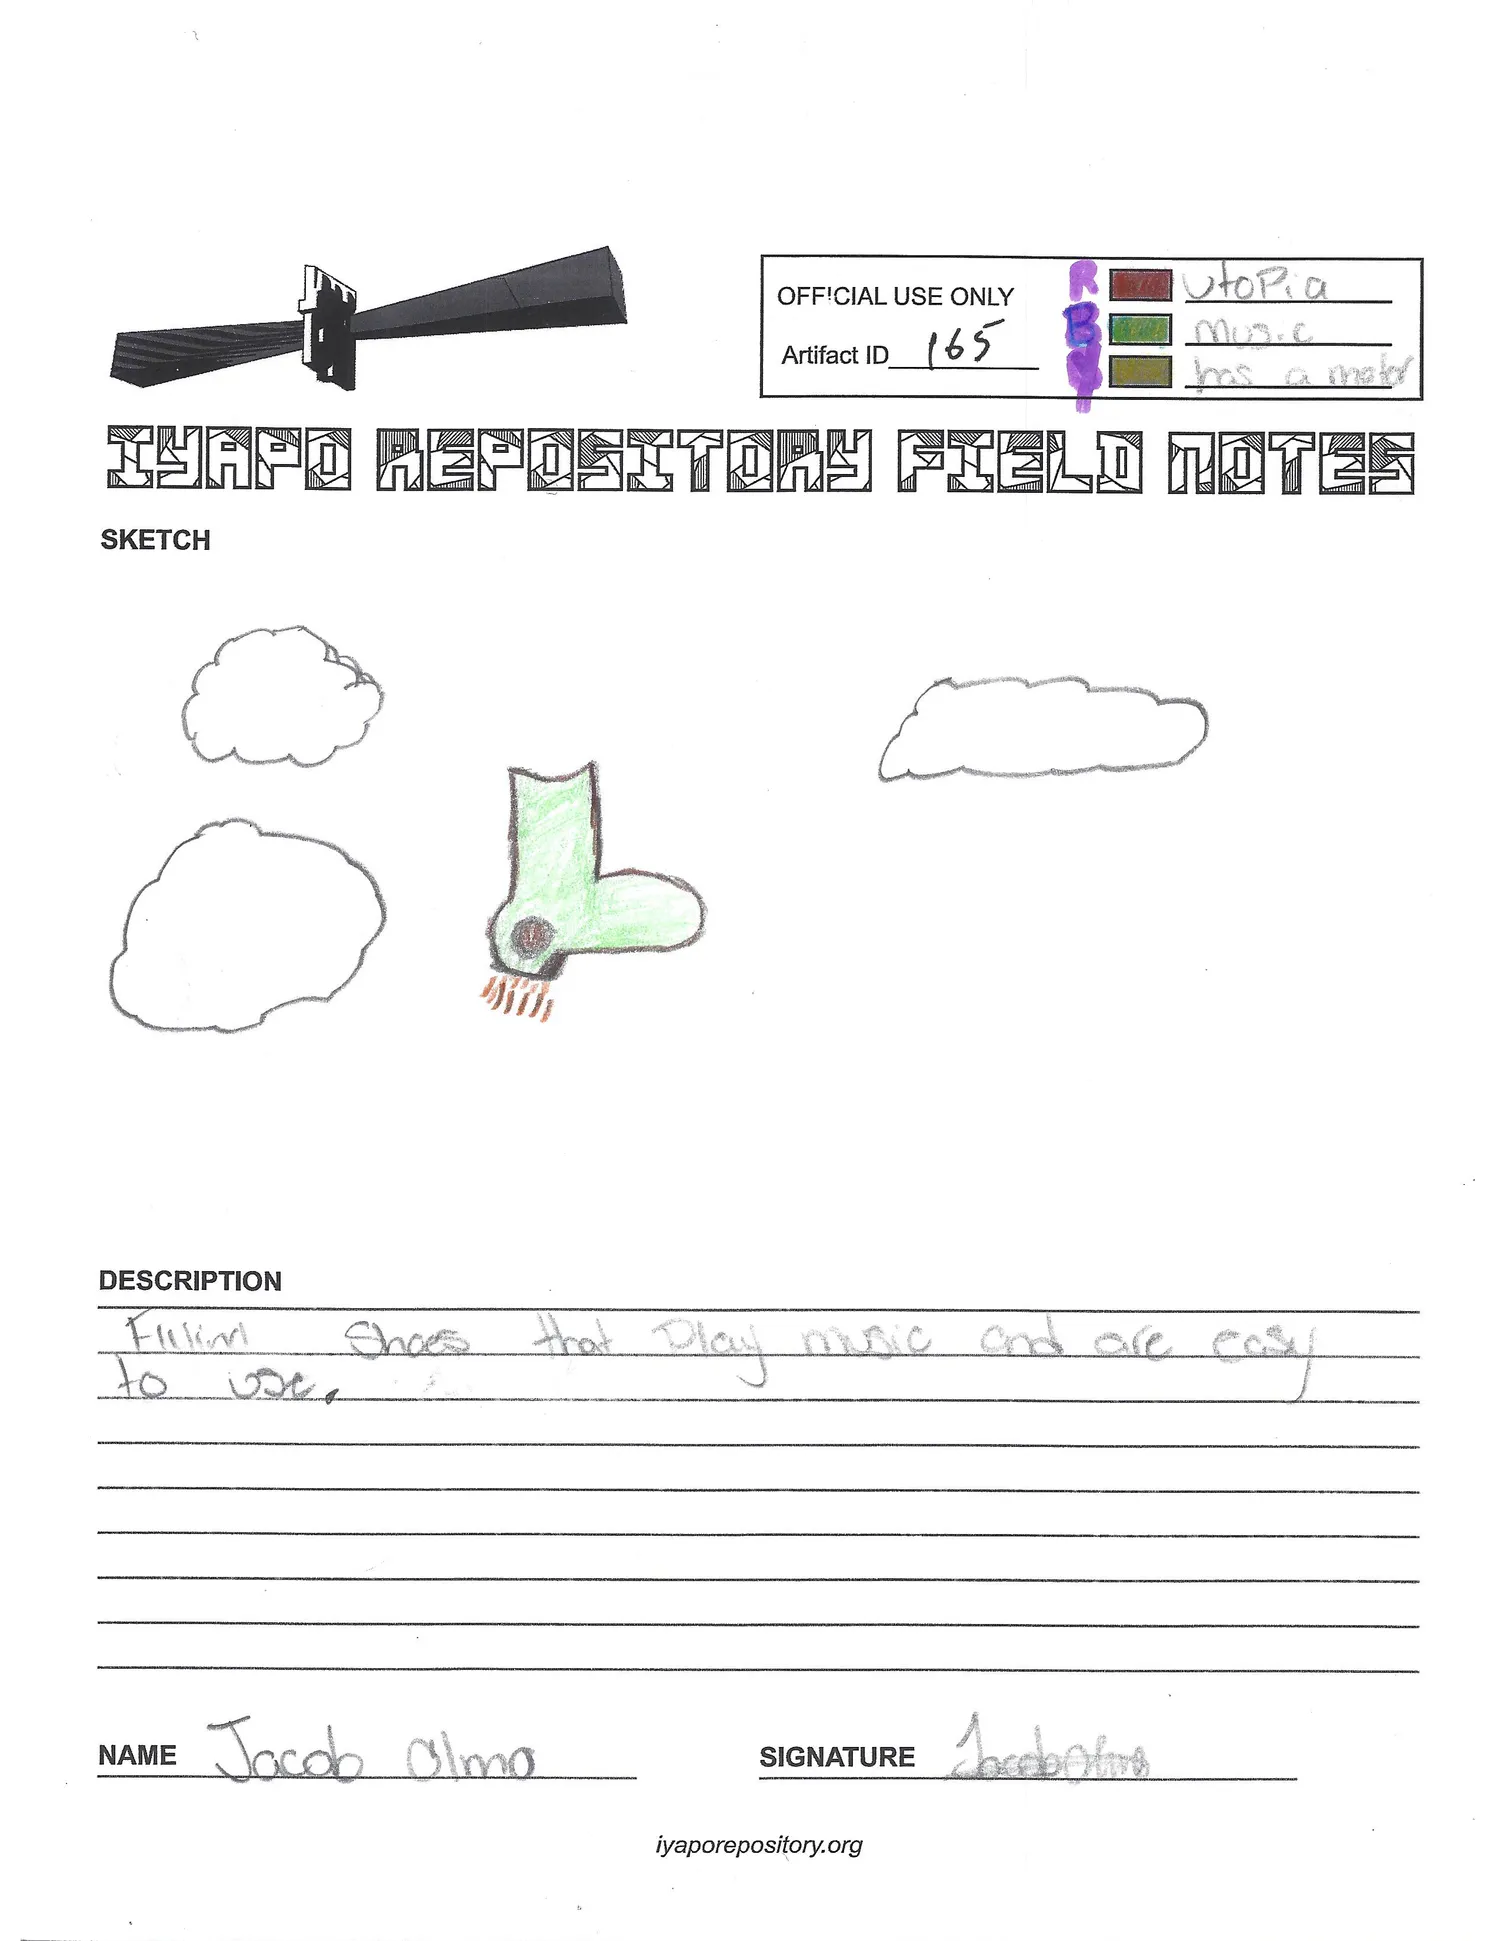 OFFICIAL USE ONLY
Artifact ID 165
R utopia
B music
Y has a motor
IYAPO REPOSITORY FIELD NOTES
SKETCH
DESCRIPTION
Shoes that Play music and are easy
to use.
NAME Jacob Olmo
SIGNATURE Jacob Olmo
iyaporepository.org